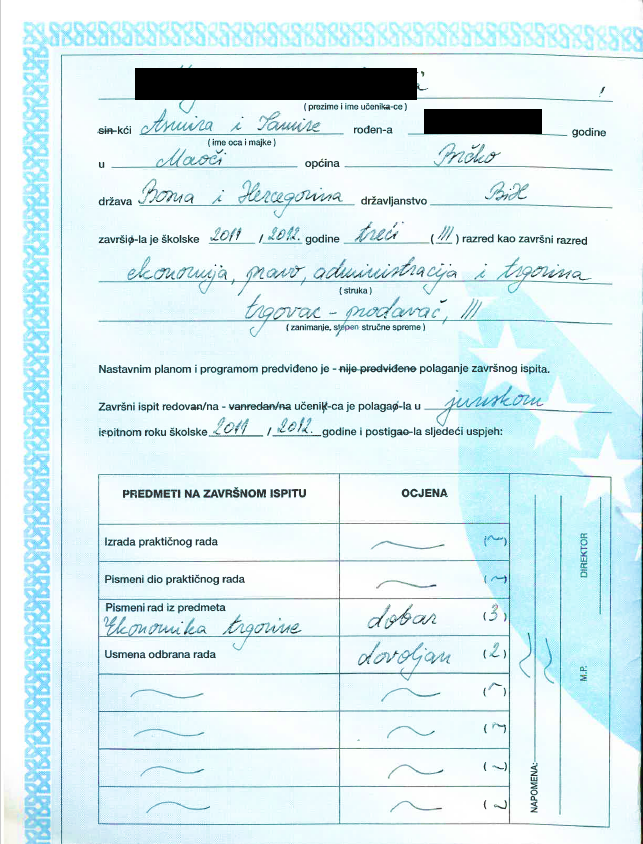 ( prezime i ime učenika-ce )
sin-kći Asmira i Samire rođen-a godine
( ime oca i majke )
u Maoči općina Brčko
država Bosna i Hercegovina državljanstvo BiH
završio-la je školske 2011 / 2012. godine treći ( III ) razred kao završni razred
ekonomija, pravo, administracija i trgovina
( struka )
trgovac - prodavač, III
( zanimanje, stepen stručne spreme )
Nastavnim planom i programom predviđeno je - nije predviđeno polaganje završnog ispita.
Završni ispit redovan/na - vanredan/na učenik-ca je polagao-la u junskom
ispitnom roku školske 2011 / 2012. godine i postigao-la sljedeći uspjeh:
PREDMETI NA ZAVRŠNOM ISPITU OCJENA
Izrada praktičnog rada
Pismeni dio praktičnog rada
Pismeni rad iz predmeta
Ekonomika trgovine dobar (3)
Usmena odbrana rada dovoljan (2)
NAPOMENA:
M.P.
DIREKTOR